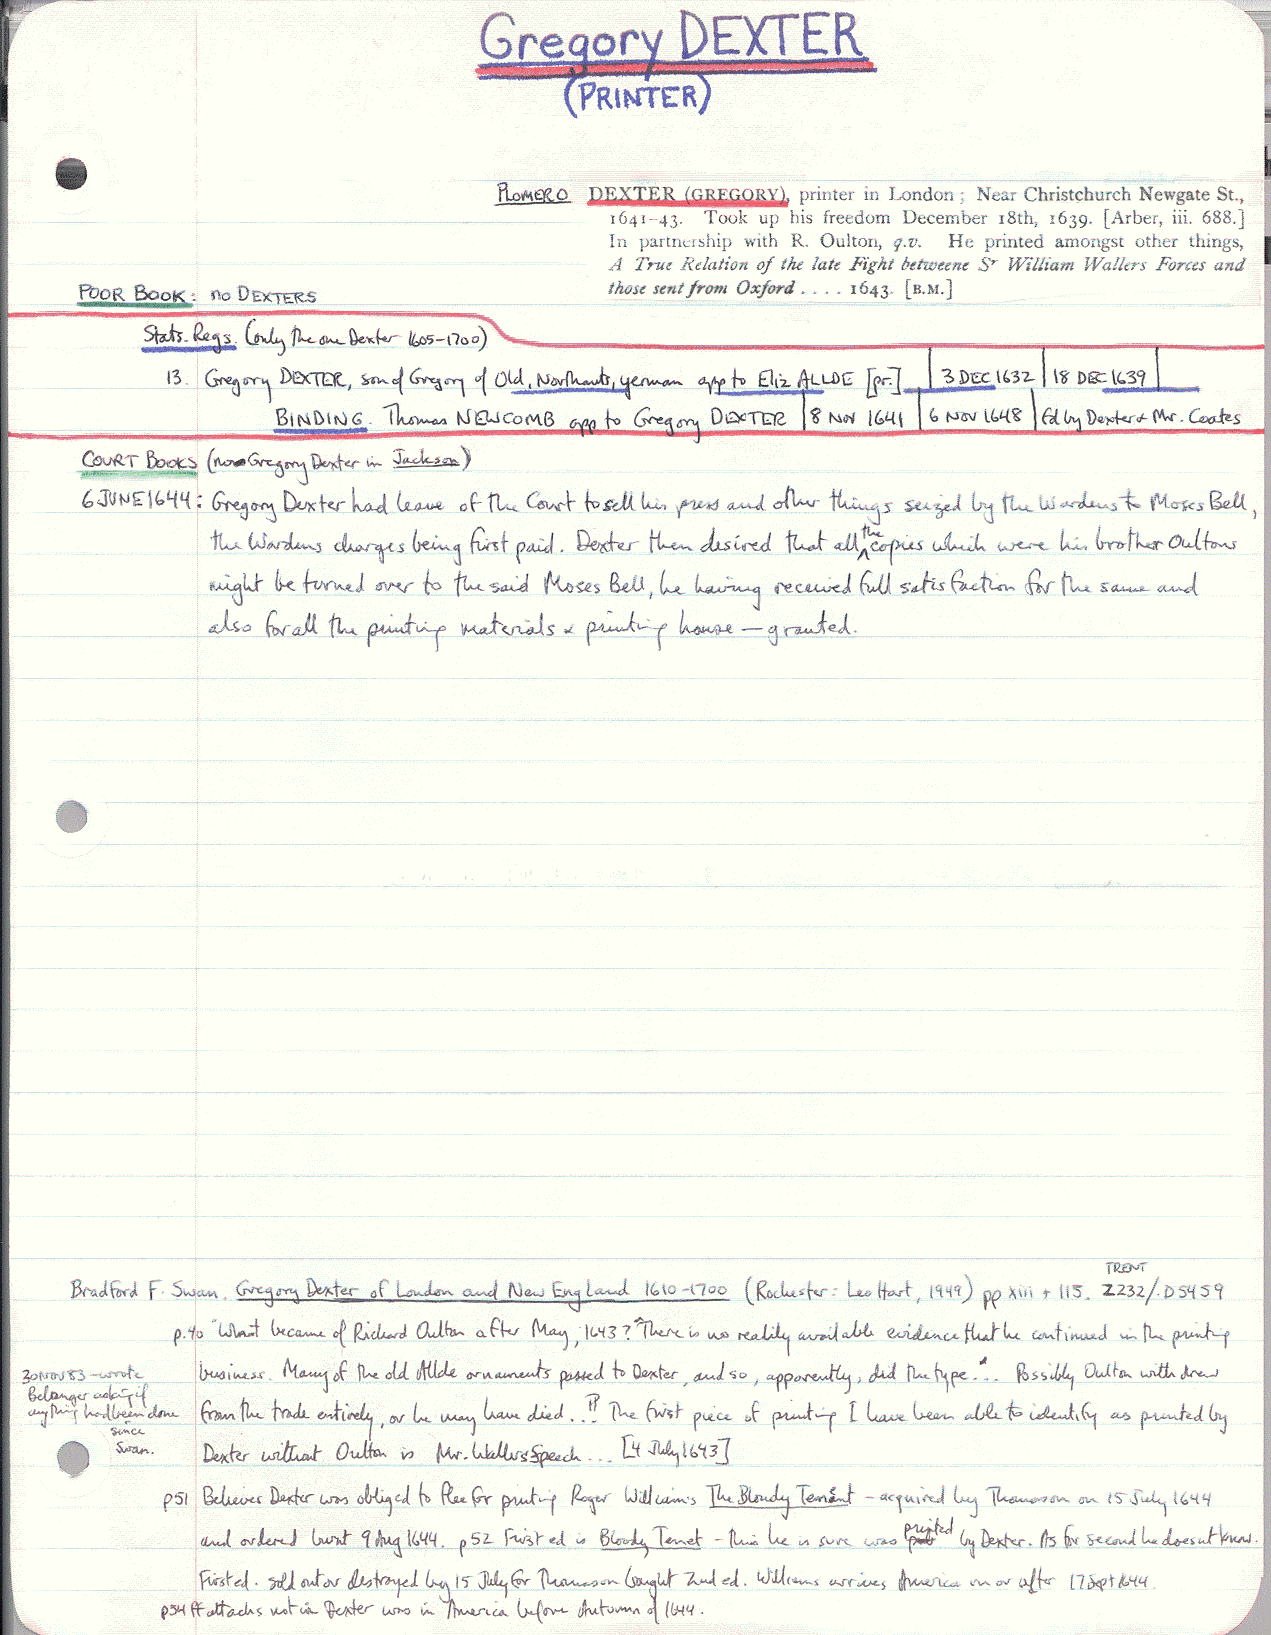 Gregory DEXTER
(PRINTER)
PLOMER O DEXTER (GREGORY), printer in London; Near Christchurch Newgate St.,
1641-43. Took up his freedom December 18th, 1639. [Arber, iii. 688.]
In partnership with R. Oulton, q.v. He printed amongst other things,
A True Relation of the late Fight betweene Sr William Wallers Forces and
those sent from Oxford . . . . 1643. [B.M.]
POOR BOOK: no DEXTERS
Stats. Regs. (only the one Dexter 1605-1700)
13. Gregory DEXTER, son of Gregory of Old, Northants, yeoman app to Eliz ALLDE [pr.] 3 DEC 1632 18 DEC 1639
BINDING. Thomas NEWCOMB app to Gregory DEXTER 8 NOV 1641 6 NOV 1648 fd by Dexter & Mr. Coates
COURT BOOKS (no Gregory Dexter in Jackson)
6 JUNE 1644: Gregory Dexter had leave of the Court to sell his press and other things seized by the Wardens to Moses Bell,
the Wardens charges being first paid. Dexter then desired that all the copies which were his brother Oultons
might be turned over to the said Moses Bell, he having received full satisfaction for the same and
also for all the printing materials & printing house — granted.
TRENT
Bradford F. Swan. Gregory Dexter of London and New England 1610-1700 (Rochester: Leo Hart, 1949) pp xiii + 115. Z232/.D5459
p.40 "What became of Richard Oulton after May, 1643? There is no readily available evidence that he continued in the printing
business. Many of the old Allde ornaments passed to Dexter, and so, apparently, did the type... Possibly Oulton withdrew
from the trade entirely, or he may have died..." The first piece of printing I have been able to identify as printed by
Dexter without Oulton is Mr. Wallers Speech... [4 July 1643]
30 NOV 83 - wrote
Belanger asking if
anything had been done
since
Swan.
p51 Believes Dexter was obliged to flee for printing Roger William's The Bloudy Tenent - acquired by Thomason on 15 July 1644
and ordered burnt 9 Aug 1644. p52 First ed is Bloody Tenet - this he is sure was printed by Dexter. As for second he doesnt know.
First ed. sold out or destroyed by 15 July for Thomason bought 2nd ed. Williams arrives America on or after 17 Sept 1644.
p54 ff Dexter was in America before Autumn of 1644.